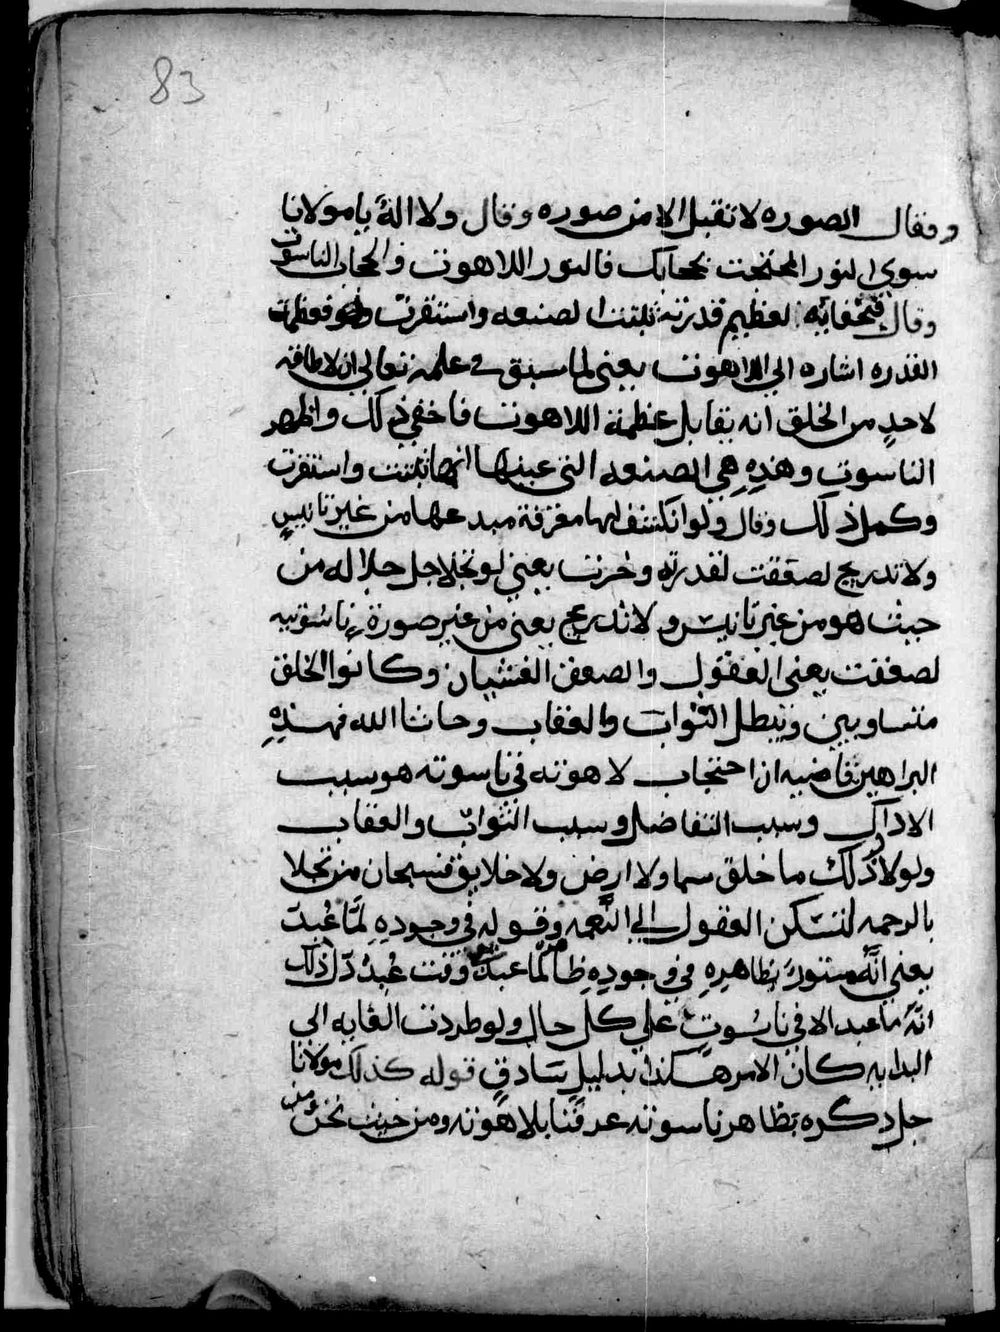 83
وفقال الصوره لا تقبل الا من صوره وقال ولا اله يا مولانا
سوي النور المحتجب بحجابك فالنور اللاهوت والحجاب الناسوت
وقال لعظيم قدرته ثبتت الصنعه واستقرت فعظمت
القدره اشاره الي اللاهوت يعني لما سبق في علمه تعالي ان لا طاقه
لاحدٍ من الخلق انه يقابل عظمة اللاهوت فاخفي ذلك واظهر
الناسوت وهذهِ هي الصنعه التي عينها انها ثبتت واستقرت
وكمل ذلك وقال ولو انكشف لها معرفة مبدعها من غير تانيسٍ
ولا تدريج لصعقت لقدرته وخرت يعني لو تجلا جل جلاله من
حيث هو من غير تانيس ولا تدريج يعني من غير صورة ناسوتيه
لصعقت يعني العقول والصعق الغشيان وكانوا الخلق
متساويين وتبطل الثواب والعقاب وحاشا الله فهذهِ
البراهين قاضيه ان احتجاب لاهوته في ناسوته هو سبب
الادراك وسبب التفاضل وسبب الثواب والعقاب
ولولا ذلك ما خلق سما ولا ارض ولا خلايق فسبحان من تجلا
بالرحمه لتسكن العقول الي النعمه وقوله في وجودهِ لمَّا عُبدَ
يعني انَّه بظاهرهِ في وجودهِ لمّا عبد وقت عُبدَ دّل ذلك
انَّهُ ما عبد الا في ناسُوتٍ علي كل حال ولو طردت الغايه الي
البدايه كان الامر هكذا بدليلٍ صَادقٍ قوله كذلك مولانا
جل ذكره بظاهر ناسوته عرفنا بلاهوته ومن حيث نحن من